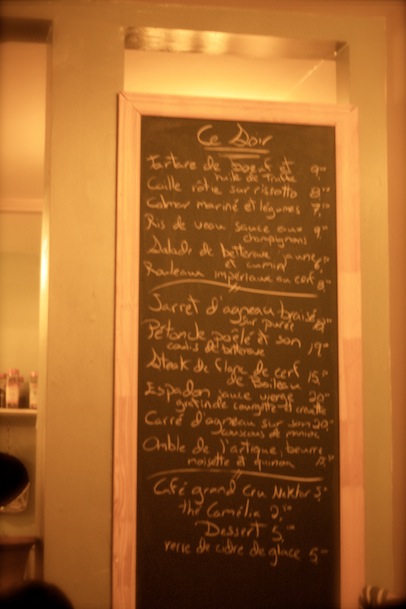 Ce Soir
Tartare de boeuf et 9
huile de truffe
Caille rôtie sur risotto 8
Calmar mariné et légumes 7
Ris de veau sauce aux 9
champignons
Salade de betterave jaune
et cumin 6
Rouleaux impériaux au cerf 8
Jarret d'agneau braisé
sur purée
Pétoncle poêlé et son 19
coulis de betterave
Steak de flanc de cerf 15
de Boileau
Espadon sauce vierge 20
gratin de courgette et
Carré d'agneau sur son 20
couscous de manioc
Omble de l'artique, beurre
noisette et quinoa
Café grand cru Nektar 3
thé Camélia 2
Dessert 5
verre de cidre de glace 5